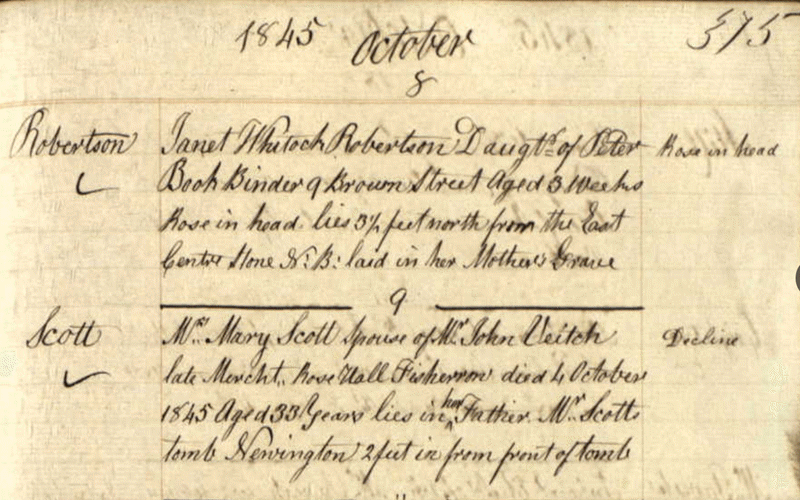 1845 October 375
8
Robertson Janet Whitock Robertson Daugtr. of Peter Rose in head
Book Binder 9 Brown Street Aged 3 Weeks
Rose in head lies 3½ feet north from the East
Centre Stone N: B: laid in her Mother's Grave
9
Scott Mrs. Mary Scott Spouse of Mr. John Veitch Decline
late Mercht. Rose Hall Fisherrow died 4 October
1845 Aged 33 Years lies in her Father Mr. Scotts
tomb Newington 2 feet in from front of tomb